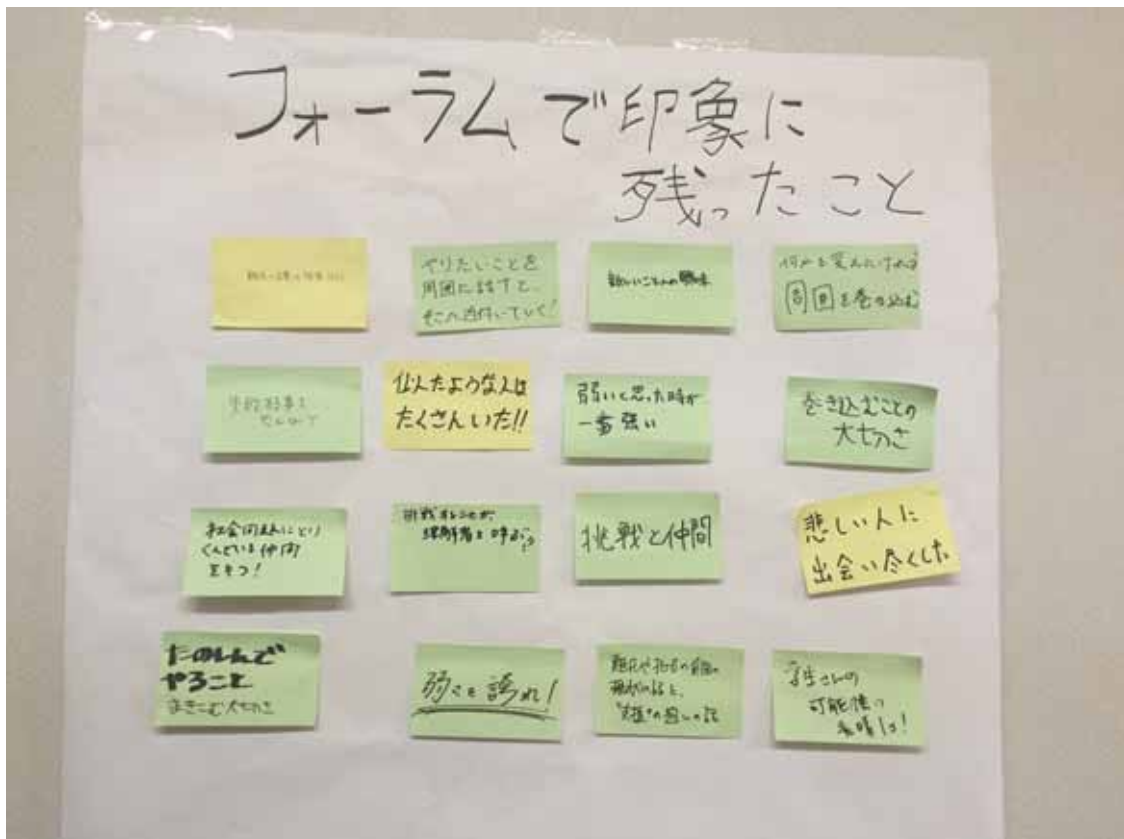 フォーラムで印象に
残ったこと
やりたいことを
周囲に話すと、
そこへ近付いていく!
新しいことへの興味
周囲を巻き込む
似たような人は
たくさんいた!!
弱いと思った時が
一番強い
巻き込むことの
大切さ
社会問題にとり
くんでいる仲間
をもつ!
挑戦することが、
理解者を呼ぶ
挑戦と仲間
悲しい人に
出会い尽くした
たのしんで
やること
まきこむ大切さ
弱さを誇れ!
学生さんの
可能性